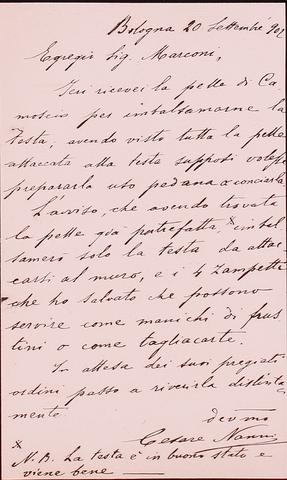 Bologna 20 Settembre 902
Egregio Sig. Marconi,
Ieri ricevei la pelle di Ca-
moscio per imbalsamarne la
testa, avendo visto tutta la pelle
attaccata alla testa supposi volesse
prepararla uso pedana o conciarla
L'avviso, che avendo trovata
la pelle già putrefatta, x imbal-
samerò solo la testa da attac-
carsi al muro, e i 4 Zampetti
che ho salvato che possono
servire come manichi di frus-
tini o come tagliacarte.
In attesa dei suoi pregiati
ordini passo a riverirla distinta-
mente
devmo
Cesare Nanni
x
N.B. La testa è in buono stato e
viene bene